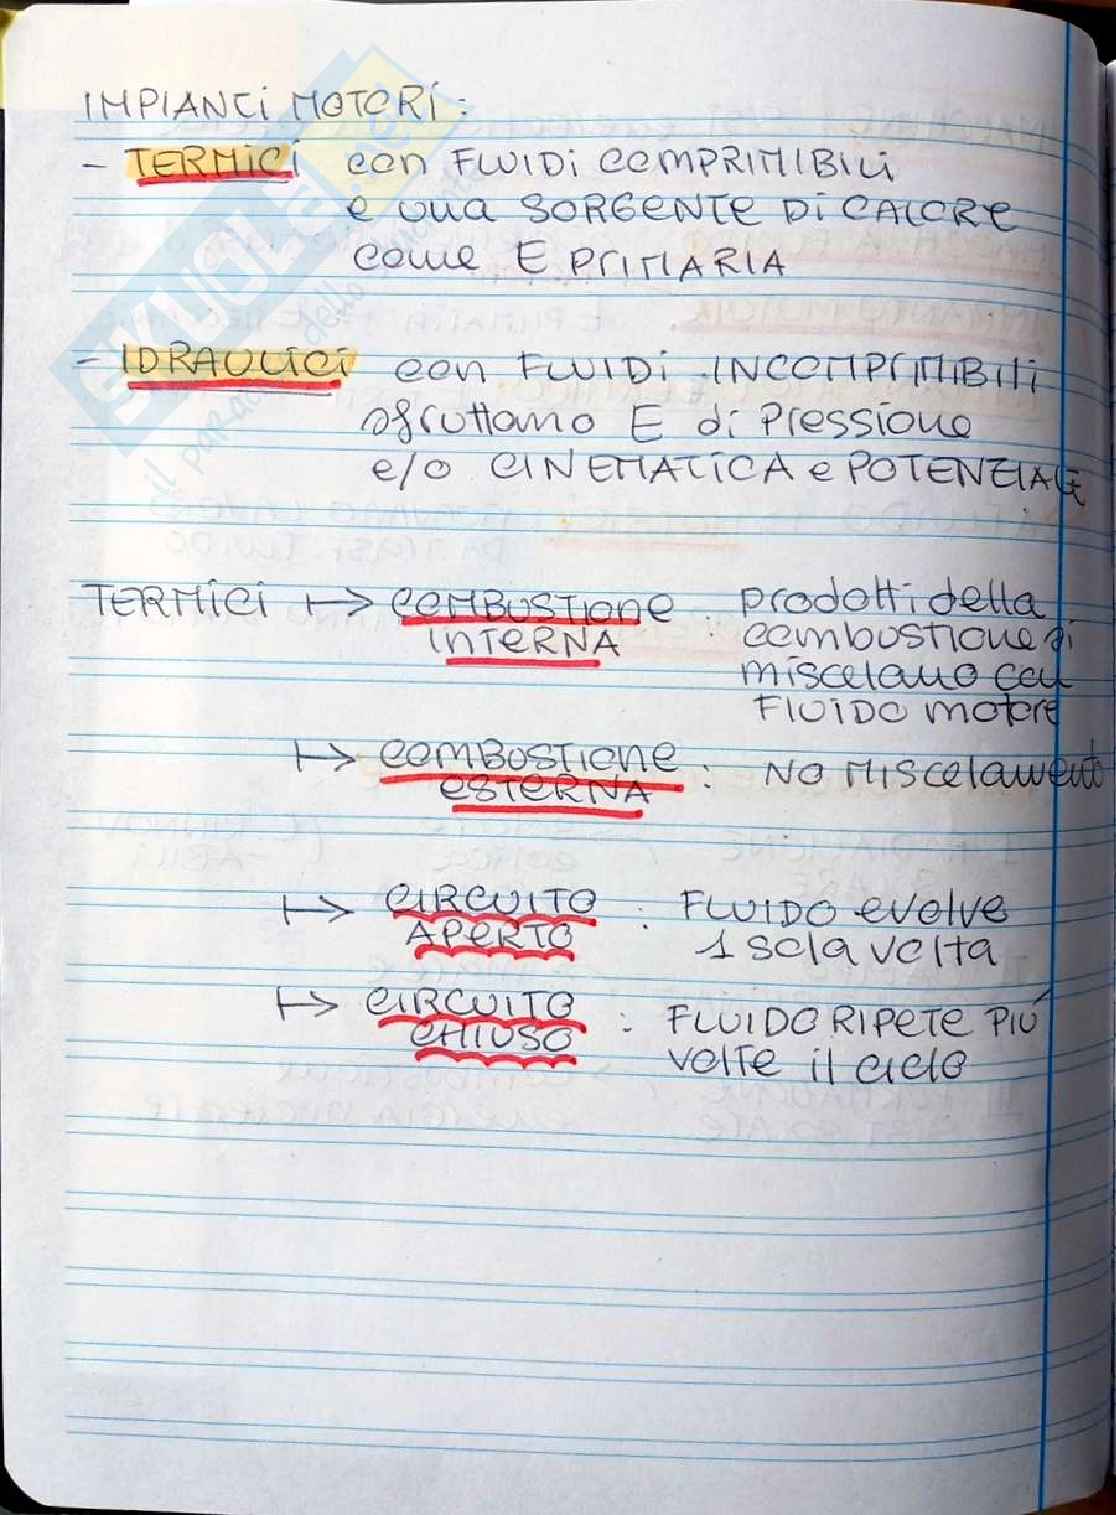 IMPIANTI MOTORI:
- TERMICI con FLUIDI COMPRIMIBILI
e una SORGENTE DI CALORE
come E PRIMARIA
- IDRAULICI con FLUIDI INCOMPRIMIBILI
sfruttano E di Pressione
e/o CINEMATICA e POTENZIALE
TERMICI ↦ COMBUSTIONE : prodotti della
INTERNA combustione si
miscelano con
FLUIDO motore
↦ COMBUSTIONE : NO MISCELAMENTO
ESTERNA
↦ CIRCUITO : FLUIDO evolve
APERTO 1 sola volta
↦ CIRCUITO : FLUIDO RIPETE PIÚ
CHIUSO volte il ciclo
SKUOLA
il paradiso dello studente